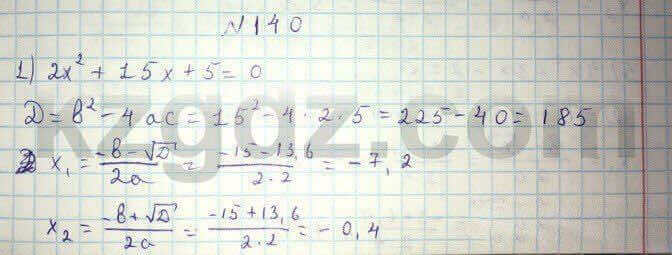 №140
1) 2x² + 15x + 5 = 0
D = b² - 4ac = 15² - 4 · 2 · 5 = 225 - 40 = 185
x₁ = (-b - √D)/2a = (-15 - 13,6)/(2·2) = -7,2
x₂ = (-b + √D)/2a = (-15 + 13,6)/(2·2) = -0,4
kzgdz.com